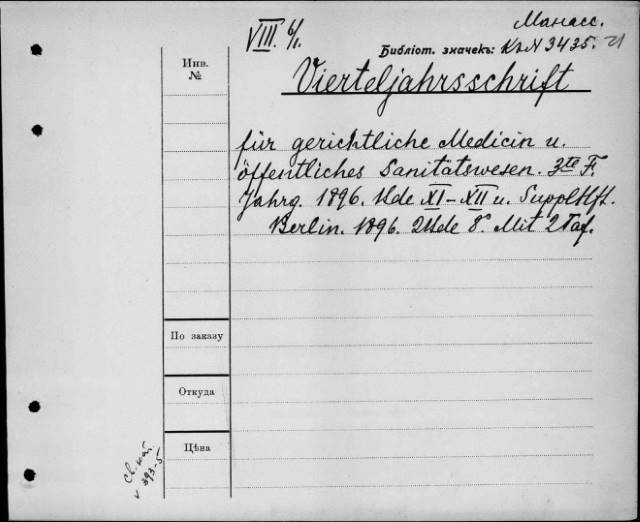 VIII. 6/1.
Манасс.
Библіот. значекъ: Кл N 3435.
Инв.
№
Vierteljahrsschrift
für gerichtliche Medicin u.
öffentliches Sanitätswesen. 3te F.
Jahrg. 1896. Bde XI–XII u. Supplthft.
Berlin. 1896. 2Bde 8°. Mit 2 Taf.
По заказу
Откуда
Цѣна
Св. кат.
393-5